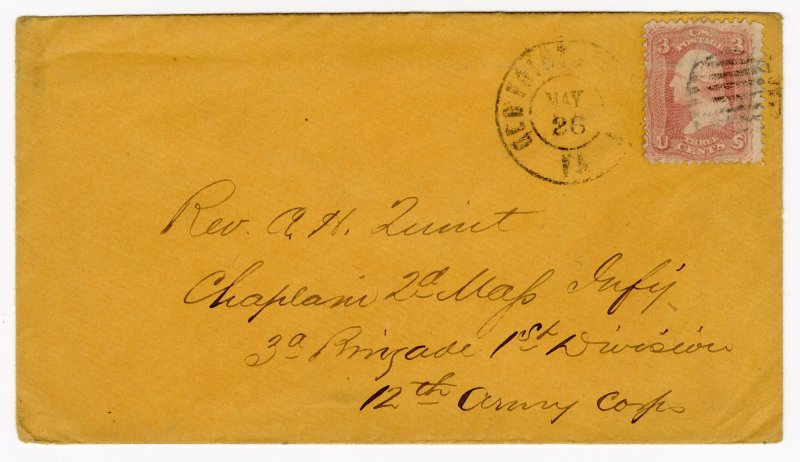 OLD POINT
MAY
26
VA
3 U.S. 3
POSTAGE
U THREE S
CENTS
Rev. A. H. Quint
Chaplain 2d Mass Infy
3d Brigade 1st Division
12th Army Corps